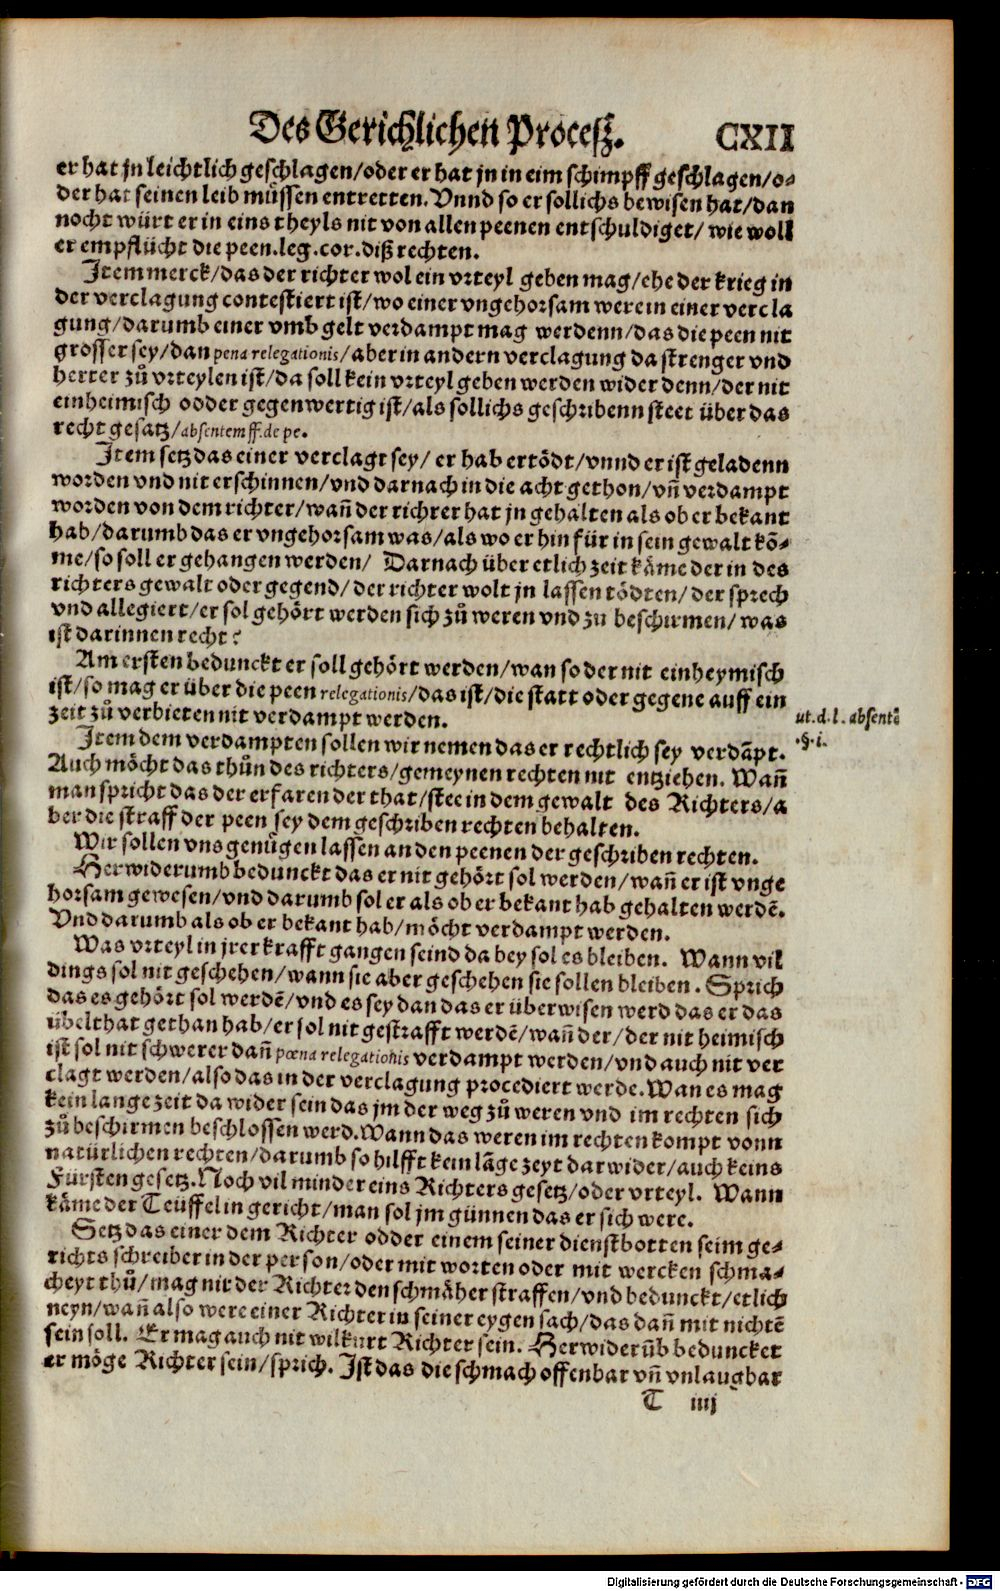 Des Gerichlichen Procesz. CXII
er hat jn leichtlich geschlagen/oder er hat jn in eim schimpff geschlagen/o-
der hat seinen leib müssen entretten. Vnnd so er sollichs bewisen hat/dan
nocht würt er in eins theyls nit von allen peenen entschuldiget/ wie woll
er empflücht die peen.leg.cor.diß rechten.
Item merck/das der richter wol ein vrteyl geben mag/ehe der krieg in
der verclagung contestiert ist/wo einer vngehorsam were in einer vercla
gung/darumb einer vmb gelt verdampt mag werdenn/das die peen nit
grosser sey/dan pena relegationis/aber in andern verclagung da strenger vnd
herter zů vrteylen ist/da soll kein vrteyl geben werden wider denn/der nit
einheimisch odder gegenwertig ist/als sollichs geschribenn steet über das
recht gesatz/absentem ff.de pe.
Item setz das einer verclagt sey/ er hab ertödt/vnnd er ist geladenn
worden vnd nit erschinnen/vnd darnach in die acht gethon/vn̄ verdampt
worden von dem richter/wan̄ der richter hat jn gehalten als ob er bekant
hab/darumb das er vngehorsam was/als wo er hin für in sein gewalt kō-
me/so soll er gehangen werden/ Darnach über etlich zeit käme der in des
richters gewalt oder gegend/der richter wolt jn lassen tödten/der sprech
vnd allegiert/er sol gehört werden sich zů weren vnd zu beschirmen/was
ist darinnen recht?
Am ersten bedunckt er soll gehört werden/wan so der nit einheymisch
ist/so mag er über die peen relegationis/das ist/die statt oder gegene auff ein
zeit zů verbieten nit verdampt werden.
ut.d.l.absentē
.§.i.
Item dem verdampten sollen wir nemen das er rechtlich sey verdāpt.
Auch möcht das thůn des richters/gemeynen rechten nit entziehen. Wan̄
man spricht das der erfaren der that/stee in dem gewalt des Richters/a
ber die straff der peen sey dem geschriben rechten behalten.
Wir sollen vns genügen lassen an den peenen der geschriben rechten.
Herwiderumb bedunckt das er nit gehört sol werden/wan̄ er ist vnge
horsam gewesen/vnd darumb sol er als ob er bekant hab gehalten werdē.
Vnd darumb als ob er bekant hab/möcht verdampt werden.
Was vrteyl in jrer krafft gangen seind da bey sol es bleiben. Wann vil
dings sol nit geschehen/wann sie aber geschehen sie sollen bleiben. Sprich
das es gehört sol werdē/vnd es sey dan das er überwisen werd das er das
übelthat gethan hab/er sol nit gestrafft werdē/wan̄ der/der nit heimisch
ist sol nit schwerer dan̄ pœna relegationis verdampt werden/vnd auch nit ver
clagt werden/also das in der verclagung procediert werde. Wan es mag
kein lange zeit da wider sein das jm der weg zů weren vnd im rechten sich
zů beschirmen beschlossen werd. Wann das weren im rechten kompt vonn
natürlichen rechten/darumb so hilfft kein lāge zeyt darwider/auch keins
Fürsten gesetz. Noch vil minder eins Richters gesetz/oder vrteyl. Wann
käme der Teüffel in gericht/man sol jm günnen das er sich were.
Setz das einer dem Richter odder einem seiner dienstbotten seim ge-
richts schreiber in der person/oder mit worten oder mit wercken schma-
cheyt thů/mag nit der Richter den schmäher straffen/vnd bedunckt/etlich
neyn/wan̄ also were einer Richter in seiner eygen sach/das dan̄ mit nichtē
sein soll. Er mag auch nit wilkürt Richter sein. Herwiderūb beduncket
er möge Richter sein/sprich. Ist das die schmach offenbar vn̄ vnlaugbar
T iiij
Digitalisierung gefördert durch die Deutsche Forschungsgemeinschaft - DFG